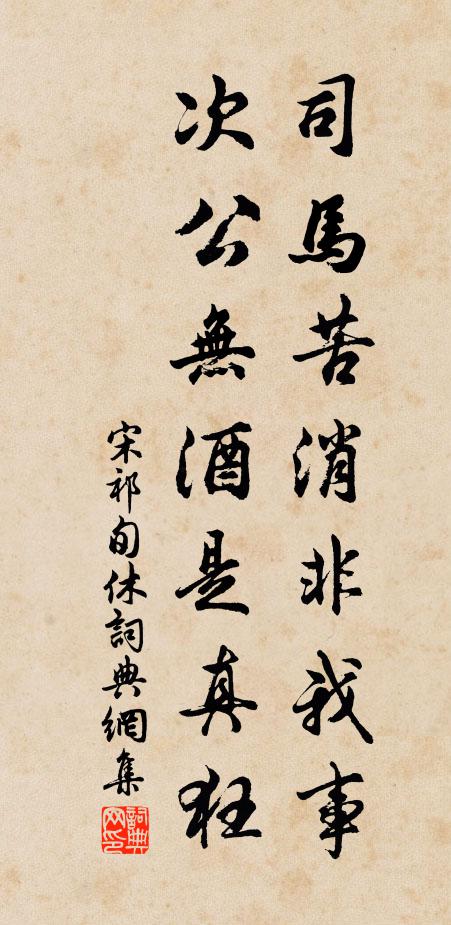 司馬苦消非我事
次公無酒是真狂
宋祁旬休詞典網集
詞典網印